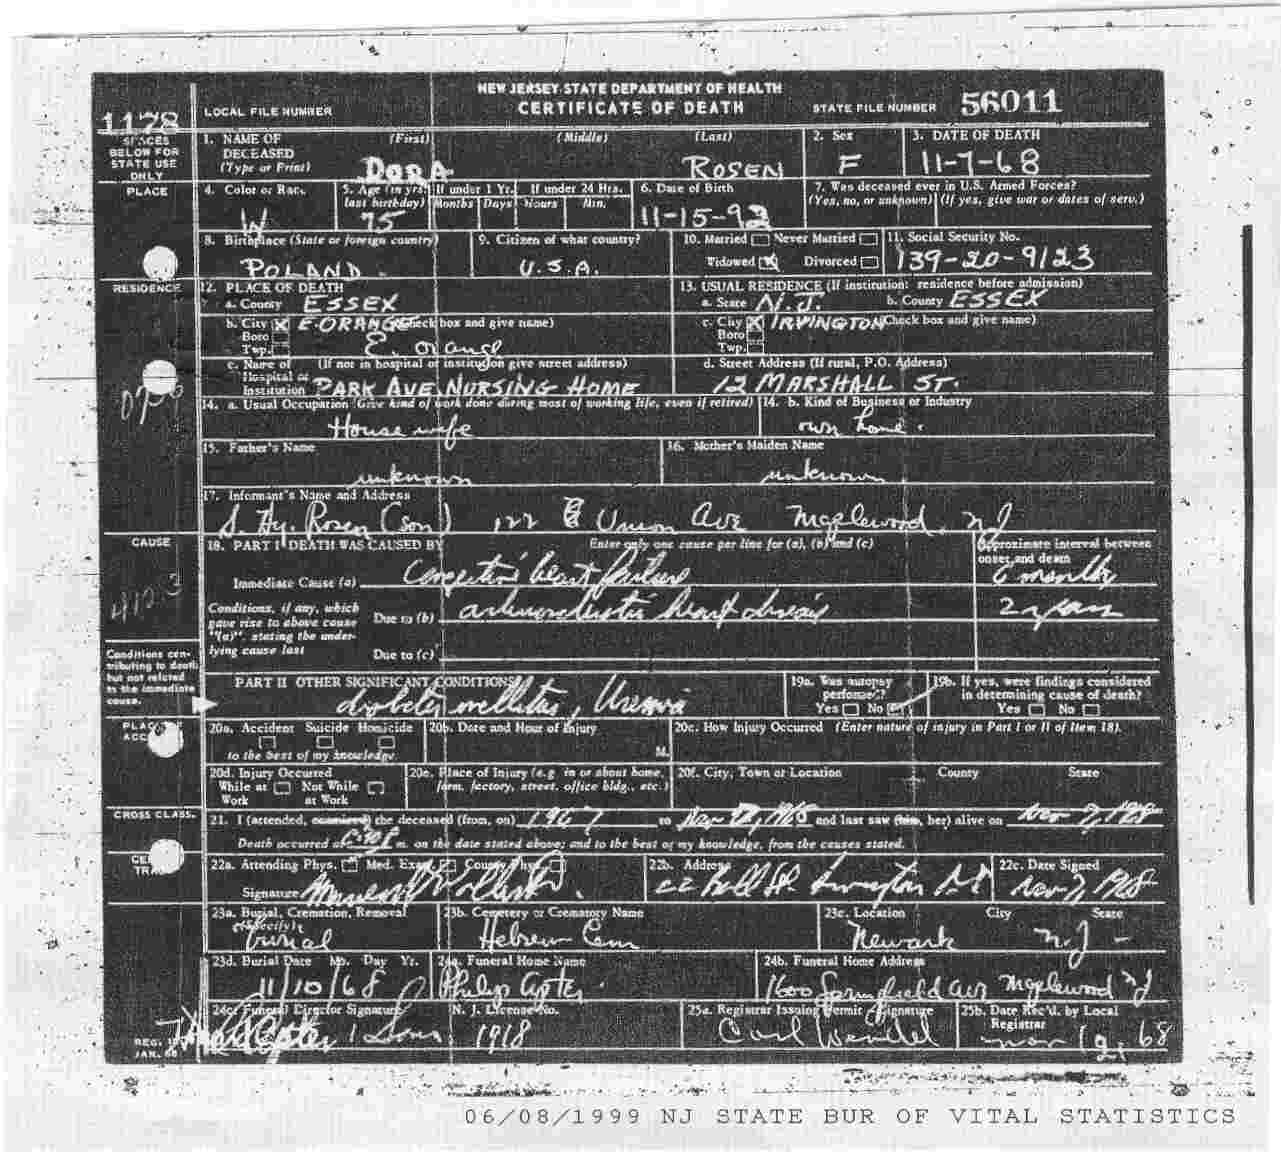 NEW JERSEY STATE DEPARTMENT OF HEALTH
CERTIFICATE OF DEATH
LOCAL FILE NUMBER
STATE FILE NUMBER 56011
1178
SPACES BELOW FOR STATE USE ONLY
1. NAME OF DECEASED (Type or Print) (First) (Middle) (Last)
DORA ROSEN
2. Sex
F
3. DATE OF DEATH
11-7-68
PLACE
4. Color or Race
W
5. Age (in yrs. last birthday)
75
If under 1 Yr. Months Days
If under 24 Hrs. Hours Min.
6. Date of Birth
11-15-92
7. Was deceased ever in U.S. Armed Forces?
(Yes, no, or unknown) (If yes, give war or dates of serv.)
8. Birthplace (State or foreign country)
POLAND
9. Citizen of what country?
U.S.A.
10. Married Never Married
Widowed X Divorced
11. Social Security No.
139-20-9123
RESIDENCE
12. PLACE OF DEATH
a. County ESSEX
b. City X E. ORANGE (Check box and give name)
Boro
Twp. E. Orange
c. Name of Hospital or Institution (If not in hospital or institution give street address)
PARK AVE NURSING HOME
13. USUAL RESIDENCE (If institution: residence before admission)
a. State N.J. b. County ESSEX
c. City X IRVINGTON (Check box and give name)
Boro
Twp.
d. Street Address (If rural, P.O. Address)
12 MARSHALL ST.
14. a. Usual Occupation (Give kind of work done during most of working life, even if retired)
Housewife
14. b. Kind of Business or Industry
own home.
15. Father's Name
unknown
16. Mother's Maiden Name
unknown
17. Informant's Name and Address
S. Hy. Rosen (son) 122 Union Ave Maplewood, NJ
CAUSE
412.3
18. PART I DEATH WAS CAUSED BY Enter only one cause per line for (a), (b) and (c)
Approximate interval between onset and death
Immediate Cause (a) Congestive heart failure 6 months
Conditions, if any, which gave rise to above cause "(a)", stating the underlying cause last
Due to (b) arteriosclerotic heart disease 2 years
Due to (c)
Conditions contributing to death but not related to the immediate cause.
PART II OTHER SIGNIFICANT CONDITIONS
diabetes mellitus, Uremia
19a. Was autopsy performed?
Yes No
19b. If yes, were findings considered in determining cause of death?
Yes No
20a. Accident Suicide Homicide
to the best of my knowledge.
20b. Date and Hour of Injury
M.
20c. How Injury Occurred (Enter nature of injury in Part I or II of Item 18).
20d. Injury Occurred
While at Work Not While at Work
20e. Place of Injury (e.g. in or about home, farm, factory, street, office bldg., etc.)
20f. City, Town or Location County State
CROSS CLASS.
21. I (attended, examined) the deceased (from, on) 1967 to Nov 7, 1968 and last saw (him, her) alive on Nov 7, 1968
Death occurred at m. on the date stated above; and to the best of my knowledge, from the causes stated.
22a. Attending Phys. Med. Exam. County Phys.
Signature
22b. Address
Irvington NJ
22c. Date Signed
Nov 7, 1968
23a. Burial, Cremation, Removal (Specify)
burial
23b. Cemetery or Crematory Name
Hebrew Cem
23c. Location City State
Newark N.J.
23d. Burial Date Mo. Day Yr.
11/10/68
24a. Funeral Home Name
Philip Apter
24b. Funeral Home Address
1600 Springfield Ave Maplewood NJ
24c. Funeral Director Signature
Apter & Sons
N. J. License No.
1918
25a. Registrar Issuing Permit Signature
Carl Wendel
25b. Date Rec'd. by Local Registrar
68
JAN. 68
06/08/1999 NJ STATE BUR OF VITAL STATISTICS